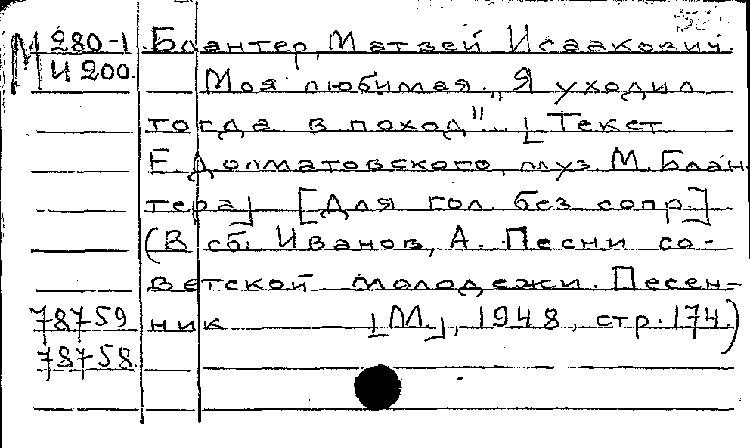 М 280-1 Блантер, Матвей Исаакович
И 200. Моя любимая. „Я уходил
тогда в поход"... [Текст
Е. Долматовского, муз. М. Блан-
тера] [Для гол. без сопр.]
(В сб. Иванов, А. Песни со-
ветской молодежи. Песен-
78759 ник [М.], 1948, стр. 174)
78758